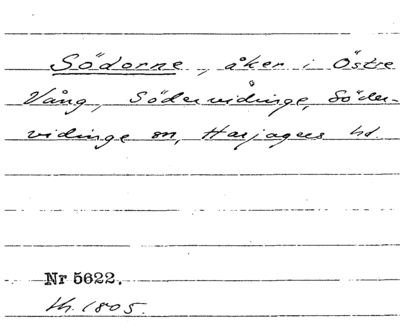 Söderne, åker i Östre
Vång, Södervidinge, Söder-
vidinge sn, Harjagers hd.
Nr 5622.
th. 1805.